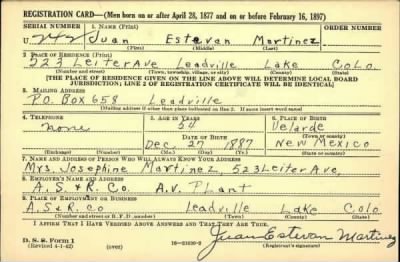 REGISTRATION CARD—(Men born on or after April 28, 1877 and on or before February 16, 1897)
SERIAL NUMBER 1. NAME (Print) ORDER NUMBER
U Juan Estevan Martinez
(First) (Middle) (Last)
2. PLACE OF RESIDENCE (Print)
223 Leiter Ave Leadville Lake Colo.
(Number and street) (Town, township, village, or city) (County) (State)
[THE PLACE OF RESIDENCE GIVEN ON THE LINE ABOVE WILL DETERMINE LOCAL BOARD
JURISDICTION; LINE 2 OF REGISTRATION CERTIFICATE WILL BE IDENTICAL]
3. MAILING ADDRESS
P.O. Box 658 Leadville
[Mailing address if other than place indicated on line 2. If same insert word same]
4. TELEPHONE 5. AGE IN YEARS 6. PLACE OF BIRTH
none 54 Velarde
DATE OF BIRTH (Town or county)
Dec. 27 1887 New Mexico
(Exchange) (Number) (Mo.) (Day) (Yr.) (State or country)
7. NAME AND ADDRESS OF PERSON WHO WILL ALWAYS KNOW YOUR ADDRESS
Mrs. Josephine Martinez, 523 Leiter Ave,
8. EMPLOYER'S NAME AND ADDRESS
A. S. & R. Co. A.V. Plant
9. PLACE OF EMPLOYMENT OR BUSINESS
A. S. & R. Co Leadville Lake Colo
(Number and street or R. F. D. number) (Town) (County) (State)
I AFFIRM THAT I HAVE VERIFIED ABOVE ANSWERS AND THAT THEY ARE TRUE.
D. S. S. Form 1
(Revised 4-1-42) (over) 16—21630-2 Juan Estevan Martinez
(Registrant's signature)